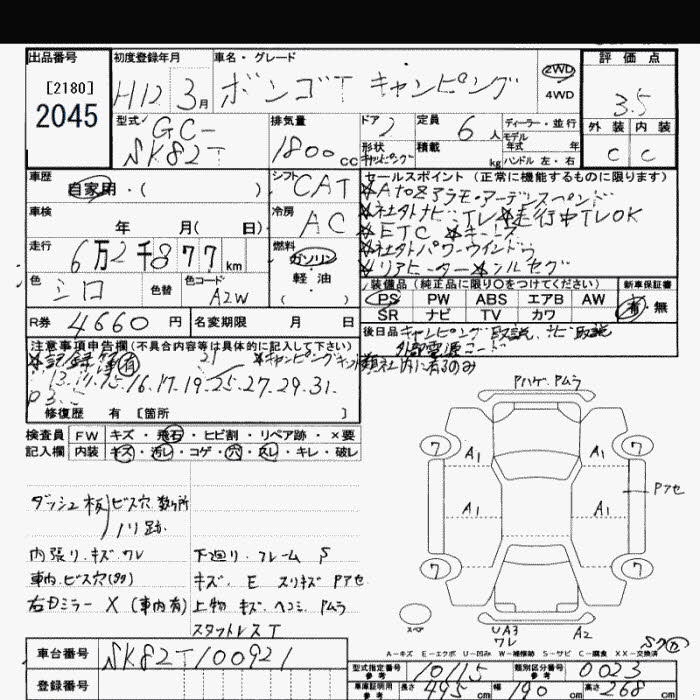 出品番号
[2180]
2045
初度登録年月
H12 3月
車名・グレード
ボンゴT キャンピング
2WD
4WD
評価点
3.5
外装 内装
C C
型式
GC-
SK82T
排気量
1800cc
ドア 2
形状 キャンピング
定員 6人
積載 kg
ディーラー・並行
モデル
年式 年
ハンドル 左・右
車歴
自家用・( )
シフト CAT
車検
年 月( 日)
冷房 AC
走行
6万2千877km
燃料
ガソリン
軽油
色 シロ
色替
色コード A2W
R券 4660円
名変期限 月 日
セールスポイント (正常に機能するものに限ります)
☆AtoZアラモ・アーデンスペンド
☆社外ナビ・TV ☆走行中TVOK
☆ETC ☆キーレス
☆社外パワーウインドウ
☆リアヒーター ☆ソルセグ
装備品 (純正品に限り○をつけてください)
PS PW ABS エアB AW
SR ナビ TV カワ
新車保証書
有・無
後日品 キャンピング取説、ナビ取説
外部電源コード
注意事項申告欄(不具合内容等は具体的に記入して下さい)
☆記録簿(有) 21 ☆キャンピング
13.14.15.16.17.19.25.27.29.31.
社内に有るのみ
修復歴 有 [箇所 ]
検査員 FW キズ・飛石・ヒビ割・リペア跡・×要
記入欄 内装 キズ・汚レ・コゲ・穴・スレ・キレ・破レ
ダッシュ板 ビス穴数ヶ所
ノリ跡
内張り キズ.ワレ
車内.ビス穴(多)
右ドミラー X (車内有)
下廻り.フレーム S
キズ. E スリキズ Pアセ
上物 キズ ヘコミ Pムラ
スタットレスT
Pハゲ.Pムラ
7 7
A1 A1
Pアセ
A1 A1
7 7
スペア
UA3
ワレ
A2
A-キズ E-エクボ U-凹み W-補修跡 S-サビ C-腐食 XX-交換済
車台番号 SK82T100921
登録番号
型式指定番号
参考 10115
類別区分番号
参考 0023
車庫証明用
参考 長さ 495cm 幅 190cm 高さ 268cm